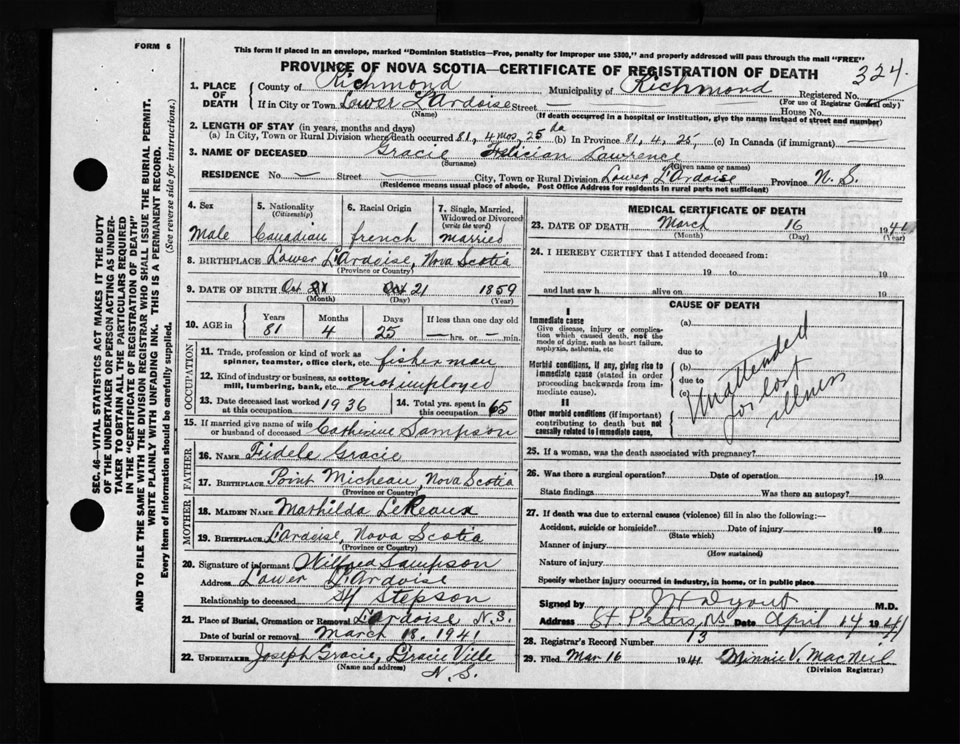 FORM 6
This form if placed in an envelope, marked "Dominion Statistics—Free, penalty for improper use $300," and properly addressed will pass through the mail "FREE"
PROVINCE OF NOVA SCOTIA—CERTIFICATE OF REGISTRATION OF DEATH
324.
SEC. 46—VITAL STATISTICS ACT MAKES IT THE DUTY
OF THE UNDERTAKER OR PERSON ACTING AS UNDER-
TAKER TO OBTAIN ALL THE PARTICULARS REQUIRED
IN THE "CERTIFICATE OF REGISTRATION OF DEATH"
AND TO FILE THE SAME WITH THE DIVISION REGISTRAR WHO SHALL ISSUE THE BURIAL PERMIT.
WRITE PLAINLY WITH UNFADING INK. THIS IS A PERMANENT RECORD.
Every item of information should be carefully supplied. (See reverse side for instructions.)
1. PLACE OF DEATH
County of Richmond Municipality of Richmond Registered No.
(For use of Registrar General only)
If in City or Town Lower L'Ardoise Street — House No. —
(Name) (If death occurred in a hospital or institution, give the name instead of street and number)
2. LENGTH OF STAY (in years, months and days)
(a) In City, Town or Rural Division where death occurred 81, 4 mos, 25 da (b) In Province 81, 4, 25, (c) In Canada (if immigrant) —
3. NAME OF DECEASED Gracie Felician Lawrence
(Surname) (Given name or names)
RESIDENCE No. — Street — City, Town or Rural Division Lower L'Ardoise Province N. S.
(Residence means usual place of abode. Post Office Address for residents in rural parts not sufficient)
4. Sex Male
5. Nationality (Citizenship) Canadian
6. Racial Origin french
7. Single, Married, Widowed or Divorced (write the word) married
8. BIRTHPLACE Lower L'Ardoise, Nova Scotia
(Province or Country)
9. DATE OF BIRTH Oct Oct 21 1859
(Month) (Day) (Year)
10. AGE in Years 81 Months 4 Days 25 If less than one day old — hrs. or — min.
OCCUPATION
11. Trade, profession or kind of work as spinner, teamster, office clerk, etc. fisherman
12. Kind of industry or business, as cotton mill, lumbering, bank, etc. not employed
13. Date deceased last worked at this occupation 1936
14. Total yrs. spent in this occupation 65
15. If married give name of wife or husband of deceased Catherine Sampson
FATHER
16. NAME Fidele Gracie
17. BIRTHPLACE Point Micheau, Nova Scotia
(Province or Country)
MOTHER
18. MAIDEN NAME Mathilda
19. BIRTHPLACE L'ardoise, Nova Scotia
(Province or Country)
20. Signature of informant Wilfred Sampson
Address Lower L'Ardoise
Relationship to deceased Stepson
21. Place of Burial, Cremation or Removal L'Ardoise N.S.
Date of burial or removal March 18, 1941
22. UNDERTAKER Joseph Gracie, Gracie Ville
(Name and address) N. S.
MEDICAL CERTIFICATE OF DEATH
23. DATE OF DEATH March 16 1941
(Month) (Day) (Year)
24. I HEREBY CERTIFY that I attended deceased from:
19 to 19
and last saw h alive on 19
CAUSE OF DEATH
I
Immediate cause
Give disease, injury or complication which caused death, not the mode of dying, such as heart failure, asphyxia, asthenia, etc
Morbid conditions, if any, giving rise to immediate cause (stated in order proceeding backwards from immediate cause).
II
Other morbid conditions (if important) contributing to death but not causally related to immediate cause.
(a)
due to
(b)
due to
(c)
Unattended
for last
illness
25. If a woman, was the death associated with pregnancy?
26. Was there a surgical operation? Date of operation 19
State findings Was there an autopsy?
27. If death was due to external causes (violence) fill in also the following:—
Accident, suicide or homicide? Date of injury 19
(State which)
Manner of injury
(How sustained)
Nature of injury
Specify whether injury occurred in industry, in home, or in public place
Signed by M.D.
Address St Peters, NS Date April 14 1941
28. Registrar's Record Number 13
29. Filed Mar 16 1941 Minnie V. MacNeil
(Division Registrar)